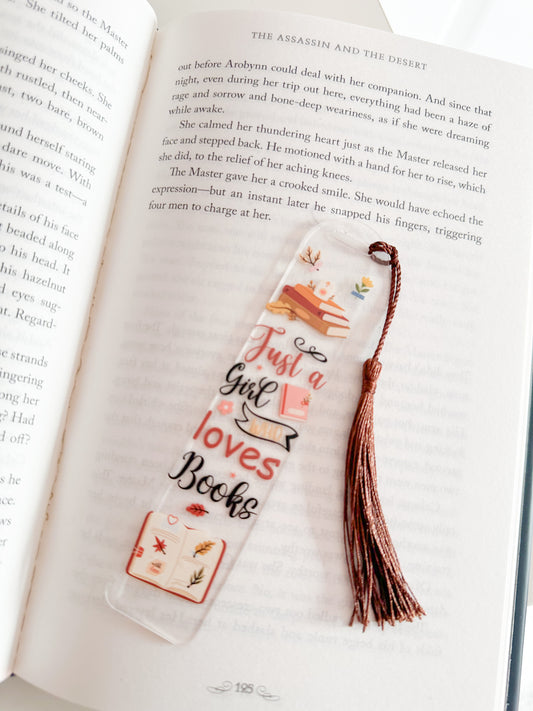 so the Master
She tilted her palms
singed her cheeks. She
th rustled, then near-
ust, two bare, brown
und herself staring
dare move. With
his was a test—a
etails of his face
beaded along
o his head. It
his hazelnut
d eyes sug-
nt. Regard-
e strands
ingering
ong her
g? Had
d off?
s he
ce.
ws
THE ASSASSIN AND THE DESERT
out before Arobynn could deal with her companion. And since that
night, even during her trip out here, everything had been a haze of
rage and sorrow and bone-deep weariness, as if she were dreaming
while awake.
She calmed her thundering heart just as the Master released her
face and stepped back. He motioned with a hand for her to rise, which
she did, to the relief of her aching knees.
The Master gave her a crooked smile. She would have echoed the
expression—but an instant later he snapped his fingers, triggering
four men to charge at her.
Just a
Girl
who
loves
Books
125